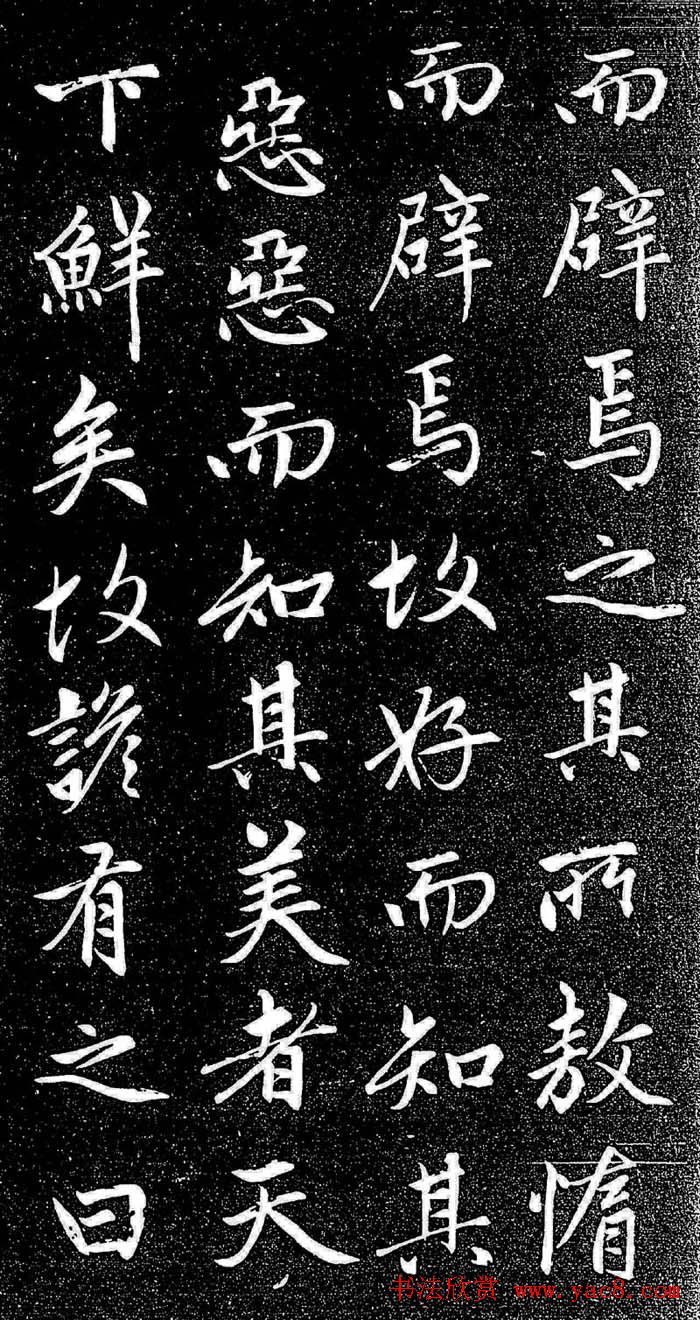 而辟焉之其所敖惰
而辟焉故好而知其
惡惡而知其美者天
下鮮矣故諺有之曰
书法欣赏 www.yac8.com